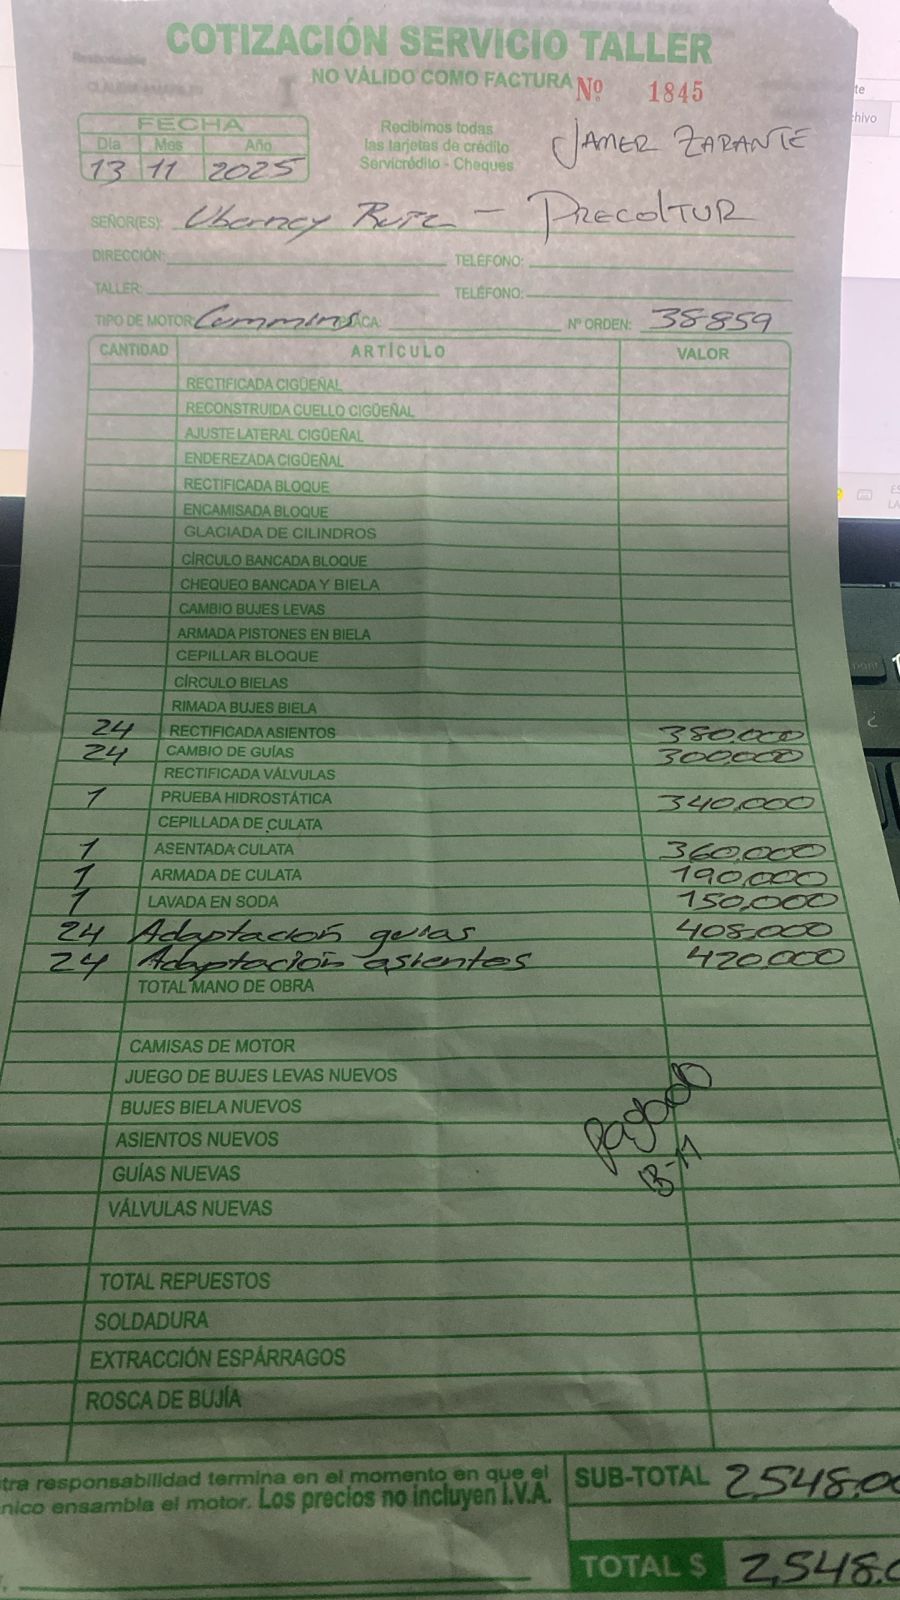 COTIZACIÓN SERVICIO TALLER
NO VÁLIDO COMO FACTURA
Nº 1845
FECHA
Día Mes Año
13 11 2025
Recibimos todas
las tarjetas de crédito
Servicrédito - Cheques
JAMER ZARANTE
SEÑOR(ES): Uberney Ruiz - PRECOLTUR
DIRECCIÓN: TELÉFONO:
TALLER: TELÉFONO:
TIPO DE MOTOR: Cummins PLACA: Nº ORDEN: 38859
CANTIDAD ARTÍCULO VALOR
RECTIFICADA CIGÜEÑAL
RECONSTRUIDA CUELLO CIGÜEÑAL
AJUSTE LATERAL CIGÜEÑAL
ENDEREZADA CIGÜEÑAL
RECTIFICADA BLOQUE
ENCAMISADA BLOQUE
GLACIADA DE CILINDROS
CÍRCULO BANCADA BLOQUE
CHEQUEO BANCADA Y BIELA
CAMBIO BUJES LEVAS
ARMADA PISTONES EN BIELA
CEPILLAR BLOQUE
CÍRCULO BIELAS
RIMADA BUJES BIELA
24 RECTIFICADA ASIENTOS 380.000
24 CAMBIO DE GUÍAS 300.000
RECTIFICADA VÁLVULAS
1 PRUEBA HIDROSTÁTICA 340.000
CEPILLADA DE CULATA
1 ASENTADA CULATA 360.000
1 ARMADA DE CULATA 190.000
1 LAVADA EN SODA 150.000
24 Adaptación guías 408.000
24 Adaptación asientos 420.000
TOTAL MANO DE OBRA
CAMISAS DE MOTOR
JUEGO DE BUJES LEVAS NUEVOS
BUJES BIELA NUEVOS
ASIENTOS NUEVOS
GUÍAS NUEVAS
VÁLVULAS NUEVAS
Pagado
13-11
TOTAL REPUESTOS
SOLDADURA
EXTRACCIÓN ESPÁRRAGOS
ROSCA DE BUJÍA
tra responsabilidad termina en el momento en que el
nico ensambla el motor. Los precios no incluyen I.V.A.
SUB-TOTAL 2,548.00
TOTAL $ 2,548.0